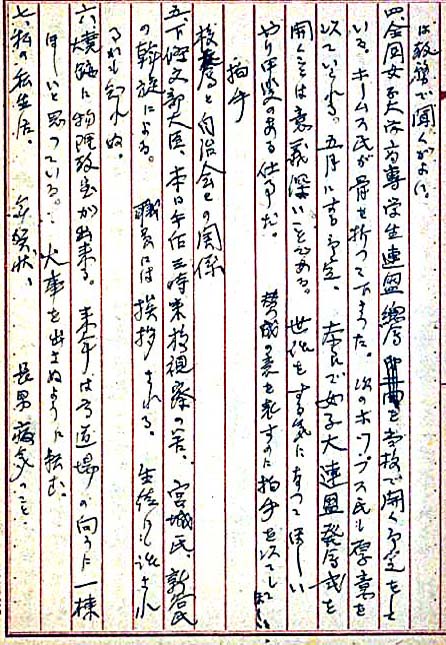 は教務で聞くがよい。
四、全国女子大学高専学生連盟総会を当校で開く予定をして
いる。ホームス氏が骨を折って下さった。次のホップス氏も厚意を
以ていられる。五月にする予定。奈良で女子大連盟発会式を
開くことは意義深いことである。世話をする気になってほしい
やり甲斐のある仕事だ。賛成の意を表すのに拍手を以てして
拍手
校長と自治会との関係
五、下條文部大臣、本日午后三時来校視察の筈、宮城氏、
の斡旋による。職員には挨拶される。生徒にも話され
るかも知れぬ。
六、焼跡に物理教室が出来る。来年は道場の向うに一棟
ほしいと思っている。火事を出さぬように頼む。
七、私の私生活。年賀状、長男病気のこと